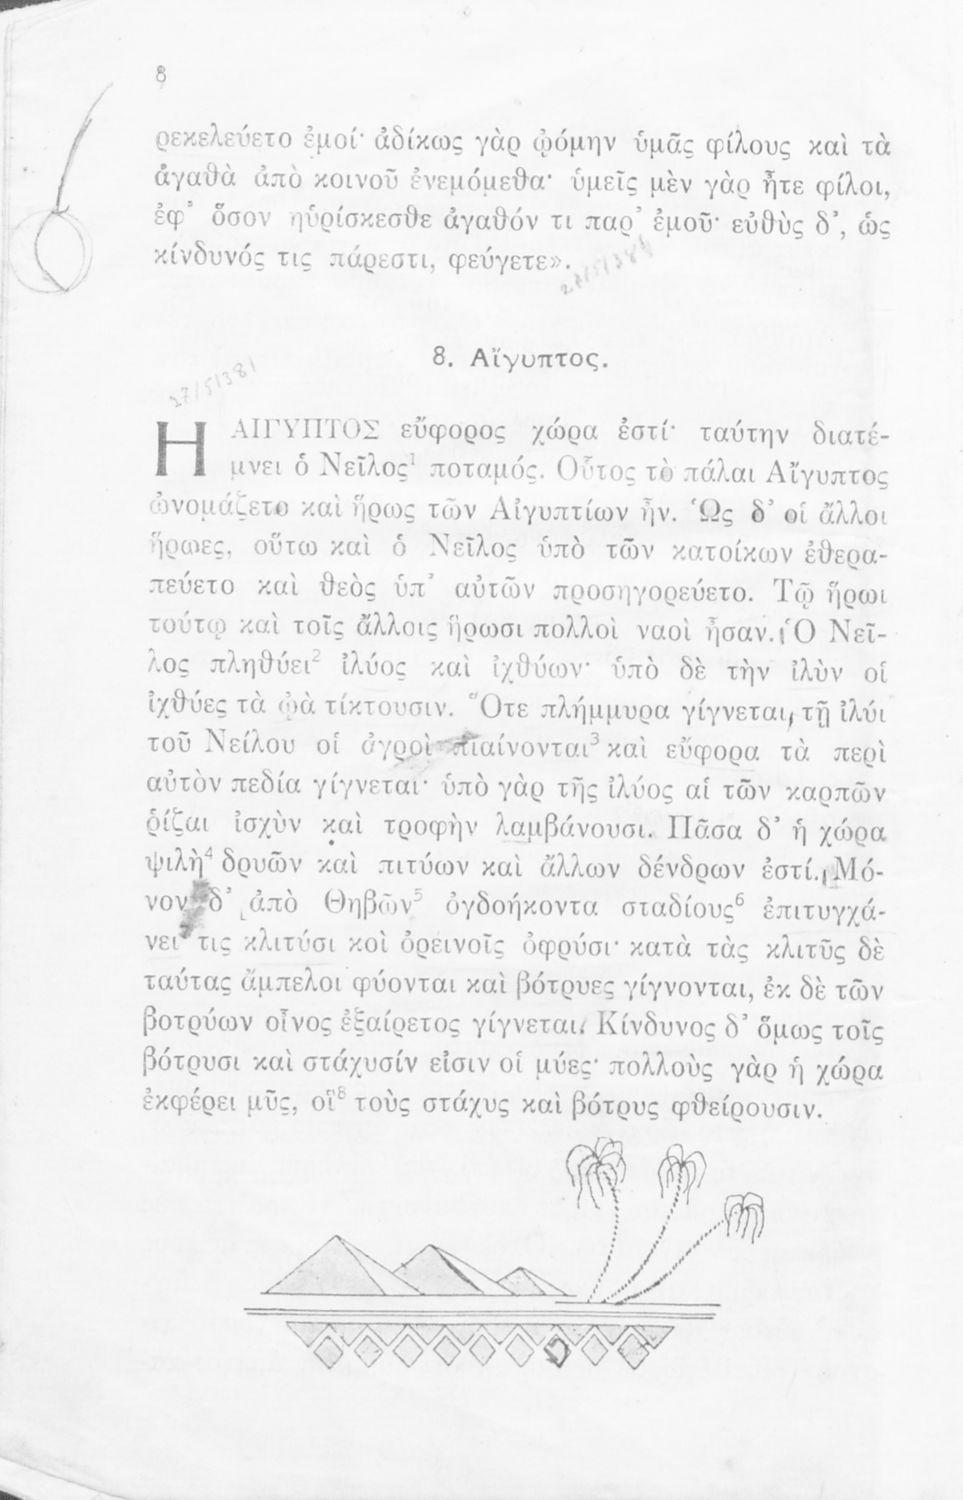 8
ρεκελεύετο ἐμοί· ἀδίκως γὰρ ᾠόμην ὑμᾶς φίλους καὶ τὰ
ἀγαθὰ ἀπὸ κοινοῦ ἐνεμόμεθα· ὑμεῖς μὲν γὰρ ἦτε φίλοι,
ἐφ' ὅσον ηὑρίσκεσθε ἀγαθόν τι παρ' ἐμοῦ· εὐθὺς δ', ὡς
κίνδυνός τις πάρεστι, φεύγετε».
27/5/1381
8. Αἴγυπτος.
27/5/1381
Η ΑΙΓΥΠΤΟΣ εὔφορος χώρα ἐστί· ταύτην διατέ-
μνει ὁ Νεῖλος¹ ποταμός. Οὗτος τὸ πάλαι Αἴγυπτος
ὠνομάζετο καὶ ἥρως τῶν Αἰγυπτίων ἦν. Ὡς δ' οἱ ἄλλοι
ἥρωες, οὕτω καὶ ὁ Νεῖλος ὑπὸ τῶν κατοίκων ἐθερα-
πεύετο καὶ θεὸς ὑπ' αὐτῶν προσηγορεύετο. Τῷ ἥρωι
τούτῳ καὶ τοῖς ἄλλοις ἥρωσι πολλοὶ ναοὶ ἦσαν. Ὁ Νεῖ-
λος πληθύει² ἰλύος καὶ ἰχθύων· ὑπὸ δὲ τὴν ἰλὺν οἱ
ἰχθύες τὰ ᾠὰ τίκτουσιν. Ὅτε πλήμμυρα γίγνεται, τῇ ἰλύι
τοῦ Νείλου οἱ ἀγροὶ πιαίνονται³ καὶ εὔφορα τὰ περὶ
αὐτὸν πεδία γίγνεται· ὑπὸ γὰρ τῆς ἰλύος αἱ τῶν καρπῶν
ῥίζαι ἰσχὺν καὶ τροφὴν λαμβάνουσι. Πᾶσα δ' ἡ χώρα
ψιλὴ⁴ δρυῶν καὶ πιτύων καὶ ἄλλων δένδρων ἐστί. Μό-
νον δ' ἀπὸ Θηβῶν⁵ ὀγδοήκοντα σταδίους⁶ ἐπιτυγχά-
νει⁷ τις κλιτύσι κοὶ ὀρεινοῖς ὀφρύσι· κατὰ τὰς κλιτῦς δὲ
ταύτας ἄμπελοι φύονται καὶ βότρυες γίγνονται, ἐκ δὲ τῶν
βοτρύων οἶνος ἐξαίρετος γίγνεται. Κίνδυνος δ' ὅμως τοῖς
βότρυσι καὶ στάχυσίν εἰσιν οἱ μύες· πολλοὺς γὰρ ἡ χώρα
ἐκφέρει μῦς, οἳ⁸ τοὺς στάχυς καὶ βότρυς φθείρουσιν.